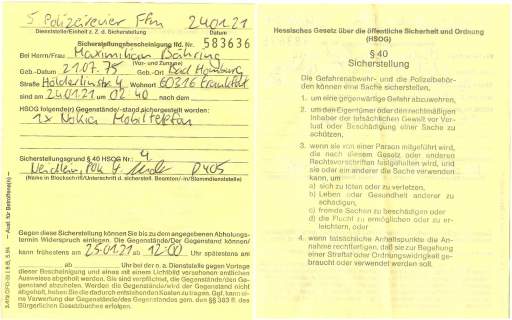 5. Polizeirevier Ffm 24.01.21
Dienststelle/Einheit z. Z. d. Sicherstellung Datum
Sicherstellungsbescheinigung lfd. Nr. 583636
Bei Herrn/Frau Maximilian Bähring
(Vor- und Zuname)
Geb.-Datum 21.07.75 Geb.-Ort Bad Homburg
Straße Hölderlinstr. 4 Wohnort 60316 Frankfurt
sind am 24.01.21 um 02:40 nach dem
HSOG folgende(r) Gegenstände/-stand sichergestellt worden:
1x Nokia Mobiltelefon
Sicherstellungsgrund § 40 HSOG Nr.: 4.
POK
(Name in Blockschrift/Unterschrift d. sicherstell. Beamten/-in/Stammdienststelle)
Gegen diese Sicherstellung können Sie bis zu dem angegebenen Abholungs-
termin Widerspruch einlegen. Die Gegenstände/Der Gegenstand können/
kann frühestens am 25.01.21 ab 12:00 Uhr spätestens am
ab Uhr bei der o. a. Dienststelle gegen Vorlage
dieser Bescheinigung und eines mit einem Lichtbild versehenen amtlichen
Ausweises abgeholt werden. Sie sind verpflichtet, die Gegenstände/den Ge-
genstand abzuholen. Werden die Gegenstände/wird der Gegenstand nicht
abgeholt, haben Sie die dadurch entstehenden Kosten zu tragen. Ggf. kann ei-
ne Verwertung der Gegenstände/des Gegenstandes gem. den §§ 383 ff. des
Bürgerlichen Gesetzbuches erfolgen.
– Ausf. für Betroffene(n) –
Hessisches Gesetz über die öffentliche Sicherheit und Ordnung
(HSOG)
§ 40
Sicherstellung
Die Gefahrenabwehr- und die Polizeibehör-
den können eine Sache sicherstellen,
1. um eine gegenwärtige Gefahr abzuwehren,
2. um den Eigentümer oder den rechtmäßigen
Inhaber der tatsächlichen Gewalt vor Ver-
lust oder Beschädigung einer Sache zu
schützen,
3. wenn sie von einer Person mitgeführt wird,
die nach diesem Gesetz oder anderen
Rechtsvorschriften festgehalten wird, und
sie oder ein anderer die Sache verwenden
kann, um
a) sich zu töten oder zu verletzen,
b) Leben oder Gesundheit anderer zu
schädigen,
c) fremde Sachen zu beschädigen oder
d) die Flucht zu ermöglichen oder zu er-
leichtern, oder
4. wenn tatsächliche Anhaltspunkte die An-
nahme rechtfertigen, daß sie zur Begehung
einer Straftat oder Ordnungswidrigkeit ge-
braucht oder verwendet werden soll.